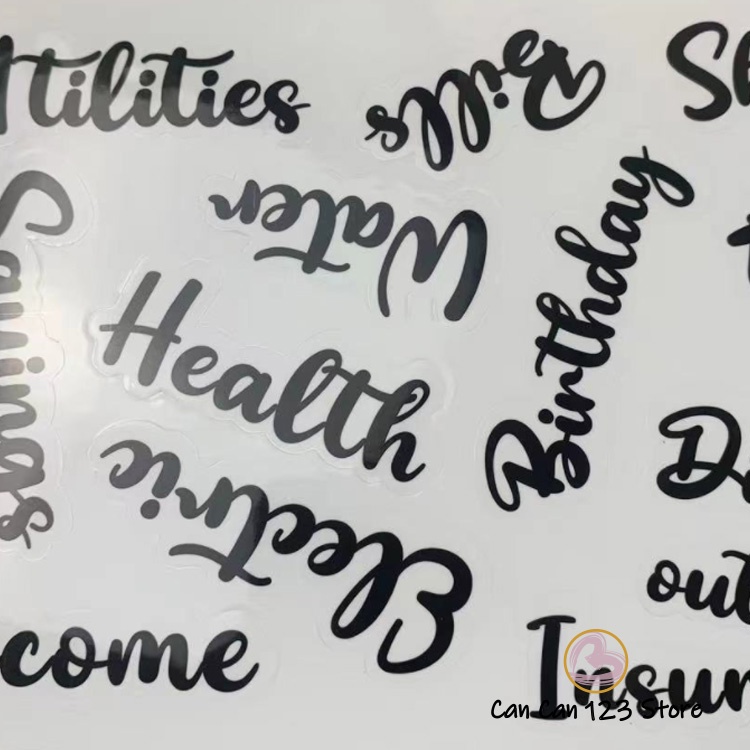 Utilities
Bills
Water
Savings
Birthday
Health
Electric
out
come
Insur
Can Can 123 Store